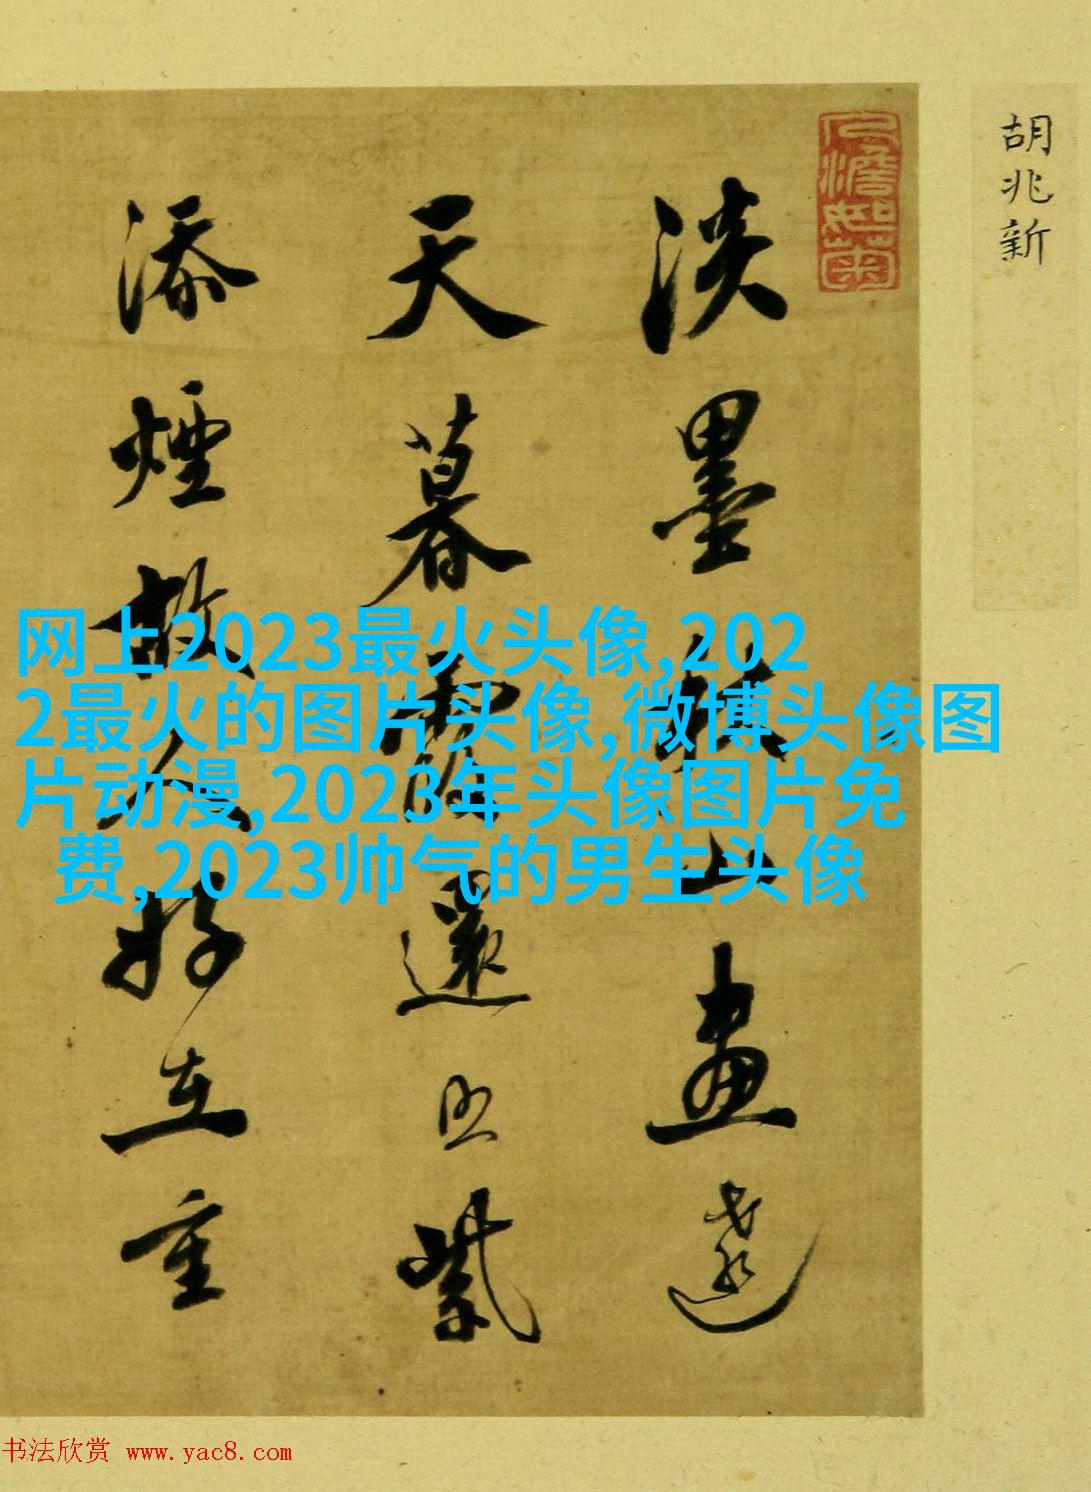 胡兆新
人澹如菊
淡墨秋山畫遠
天暮霞還照紫
添煙故人好在重
网上2023最火头像,202
2最火的图片头像,微博头像图
片动漫,2023年头像图片免
费,2023帅气的男生头像
书法欣赏 www.yac8.com